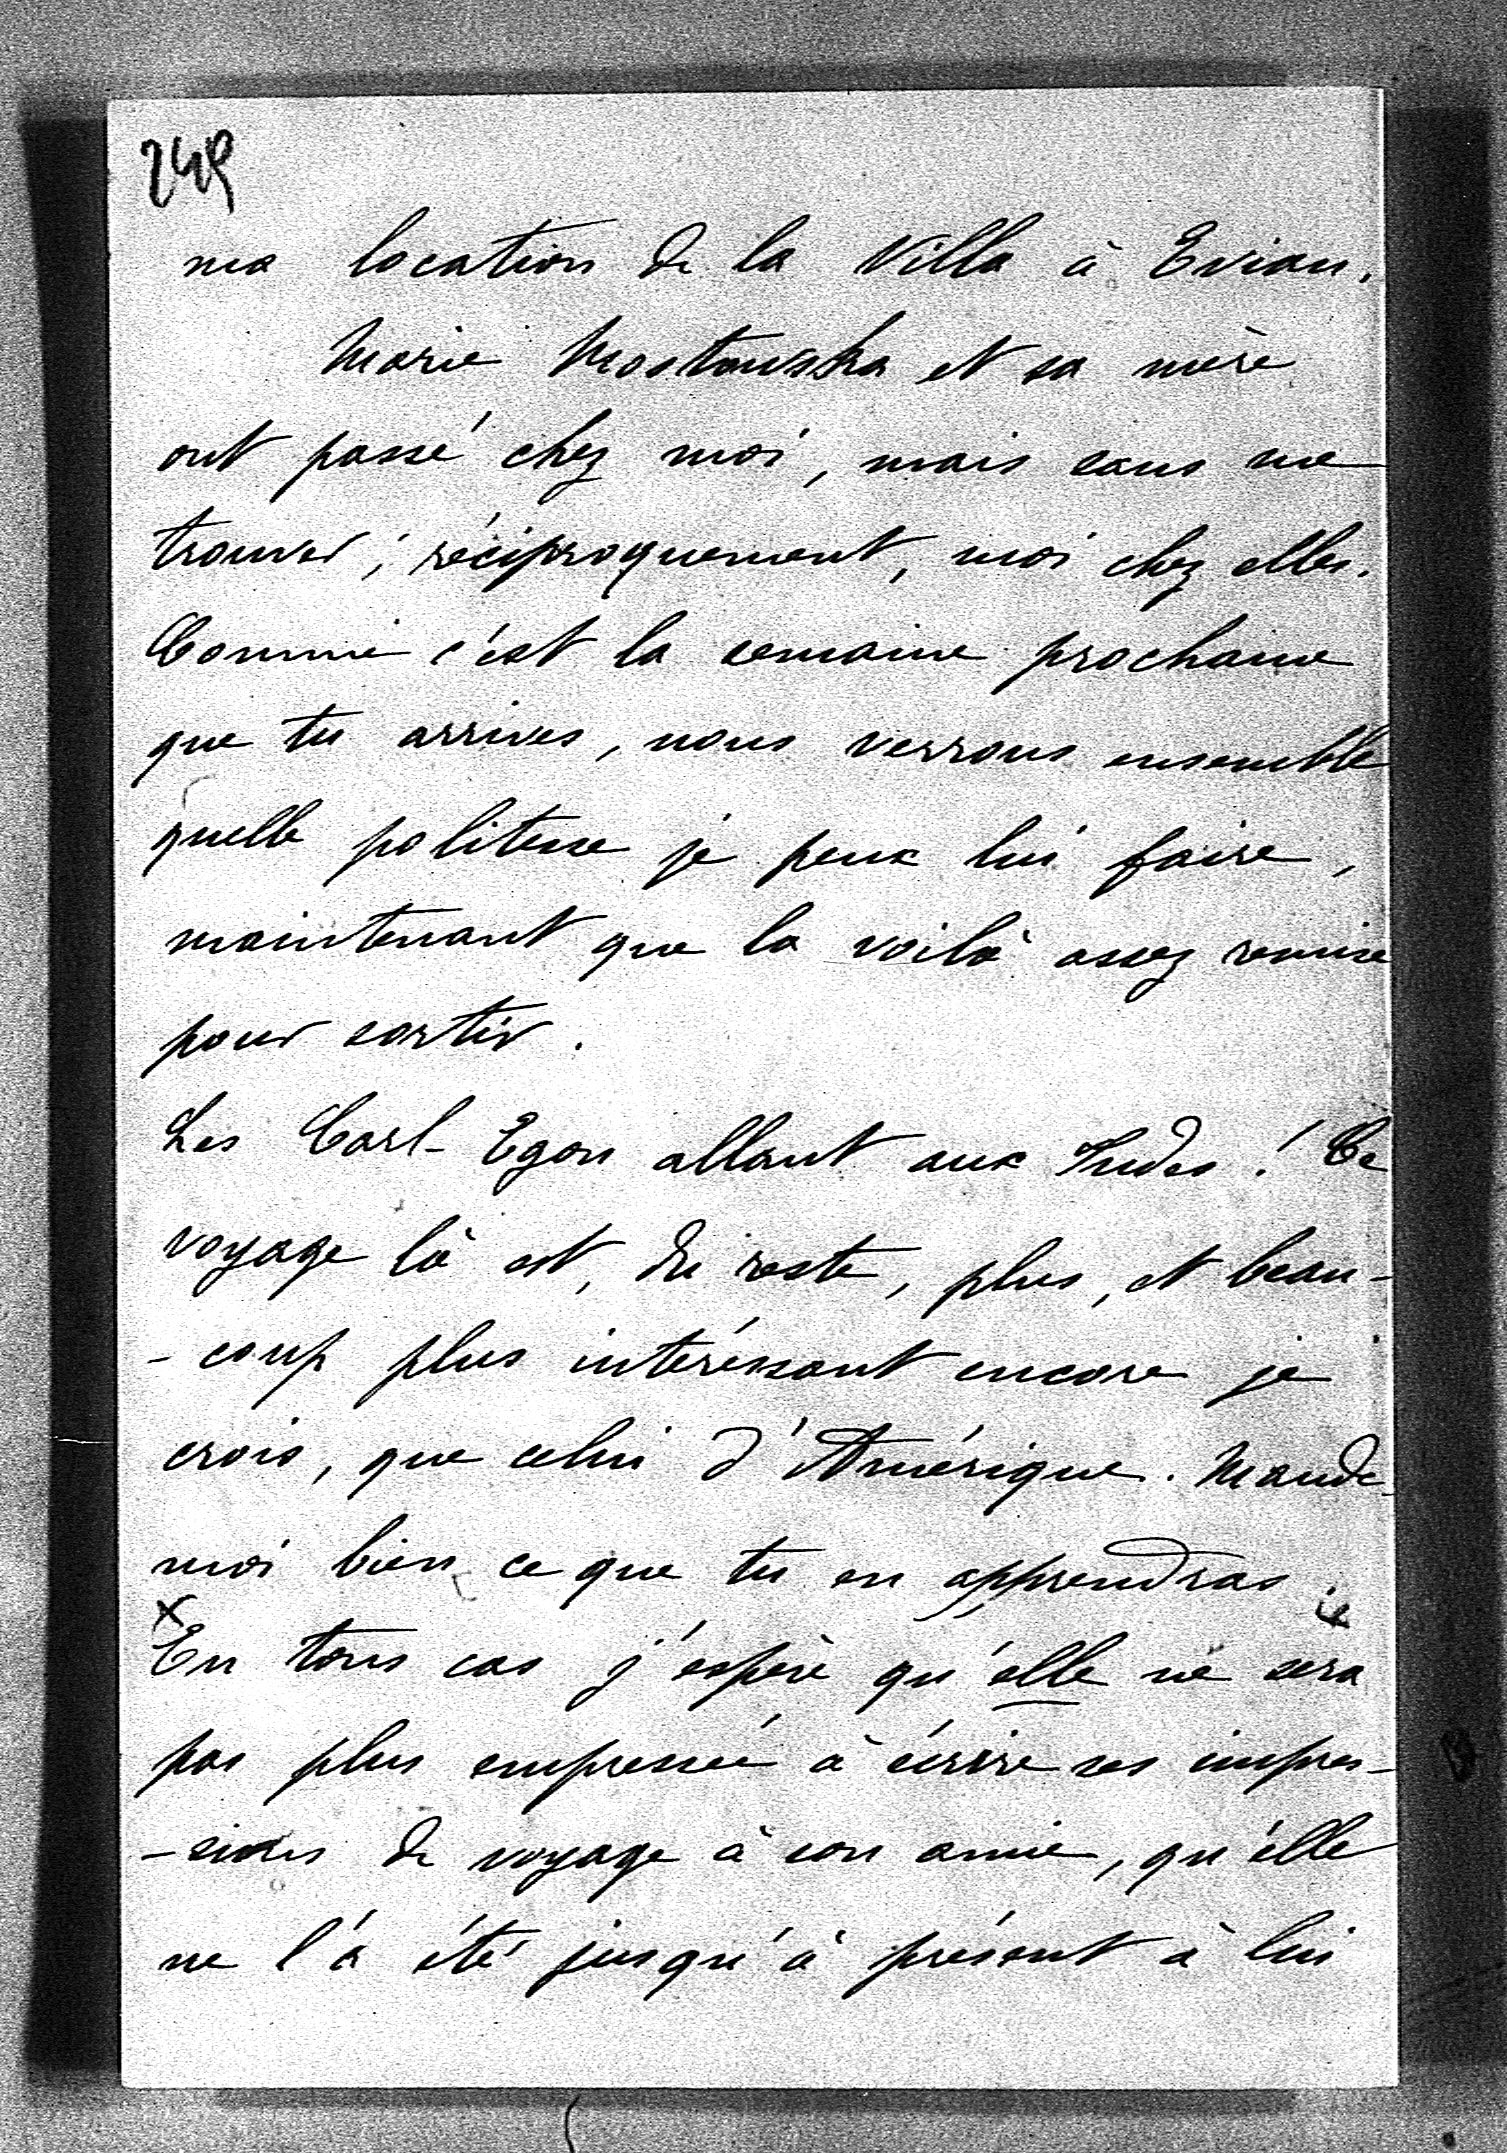 249
ma location de la Villa à Evian.
Marie Mostowska et sa mère
ont passé chez moi, mais sans me
trouver; réciproquement, moi chez elles.
Comme c'est la semaine prochaine
que tu arrives, nous verrons ensemble
quelle politesse je peux lui faire,
maintenant que la voilà assez remise
pour sortir.
Les Carl-Egon allant aux Indes! Ce
voyage là est, du reste, plus, et beau-
-coup plus intéressant encore je
crois, que celui d'Amérique. Mande-
moi bien ce que tu en apprendras.
x
En tous cas j'espère qu'elle ne sera
pas plus empressée à écrire ses impres-
-sions de voyage à son amie, qu'elle
ne l'a été jusqu'à présent à lui